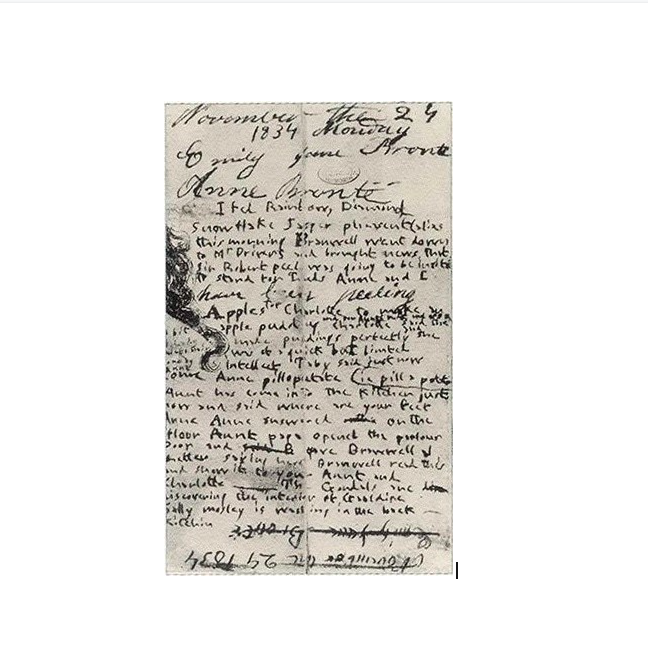 November the 24
1834 Monday
Emily Jane Brontë
Anne Brontë
I fed Rainbow, Diamond
Snowflake Jasper pheasent (alias
this morning Branwell went down
to Mr Drivers and brought news that
Sir Robert peel was going to be invited
to stand for Leeds Anne and I
have been peeling
Apples for Charlotte to make
apple pudding Charlotte said she
made puddings perfectly she
was of a quick but limted
Intellect Taby said just now
come Anne pillopatate (ie pill a potato
Aunt has come into the Kitchen just
now and said where are your feet
Anne Anne answered on the
floor Aunt papa opened the parlour
Door and gave Branwell a
letter saying here Branwell read this
and show it to your Aunt and
Charlotte The Gondals are
discovering the interior of Gaaldine
Sally mosley is washing in the back
Kitchin
November the 24 1834